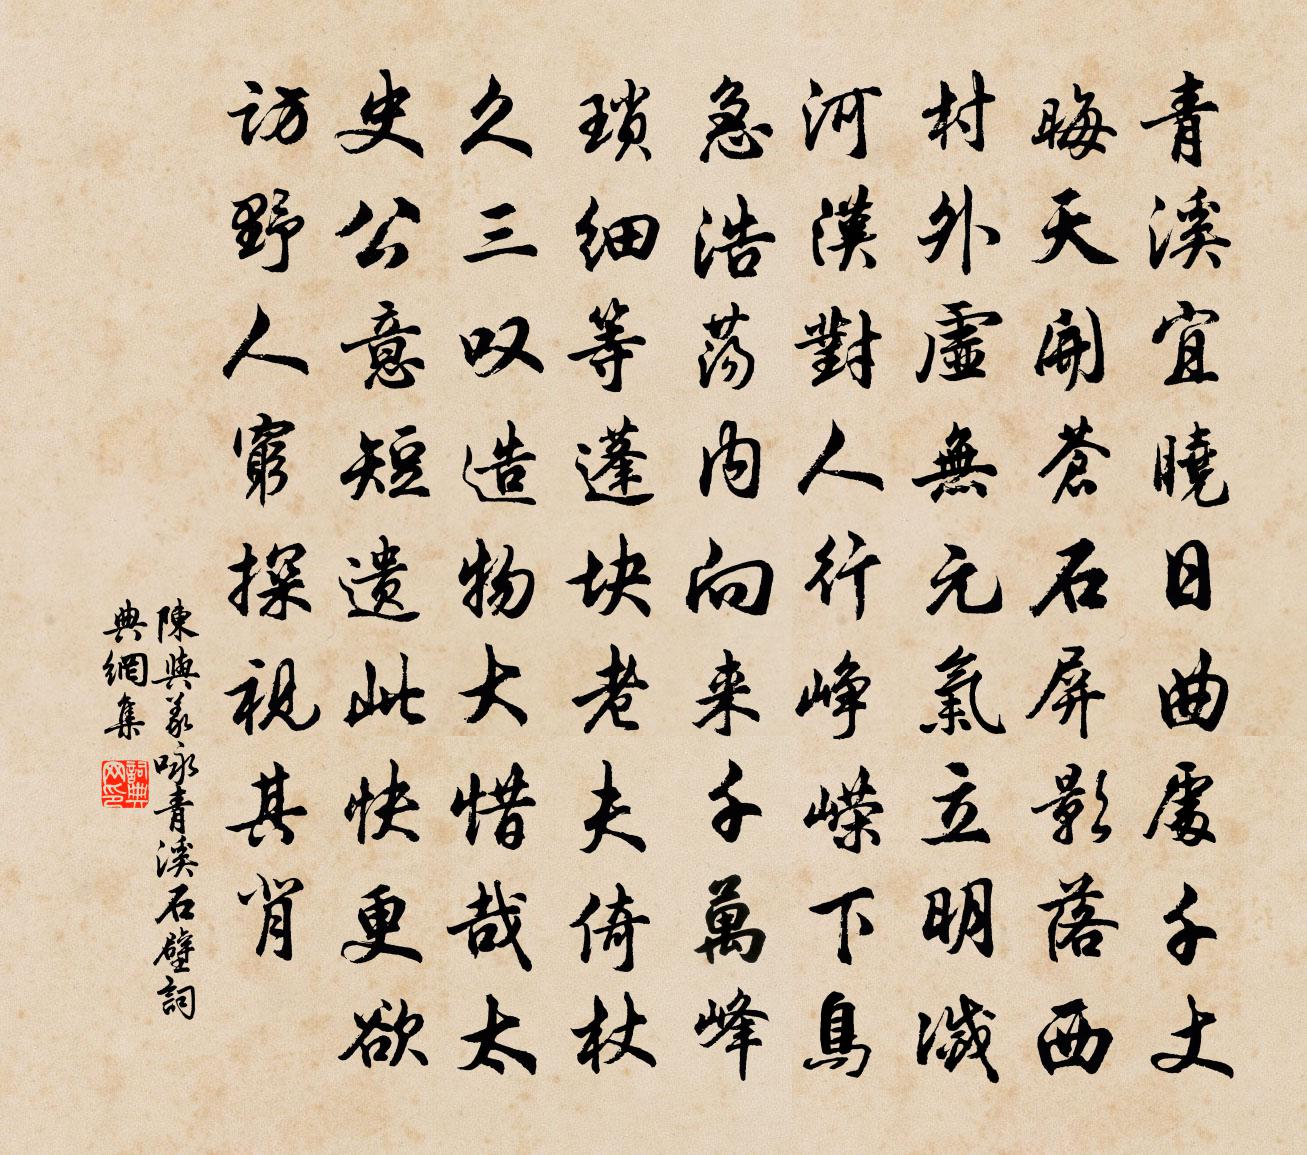 青溪宜曉日曲處千丈
晦天開蒼石屏影落西
村外虛無元氣立明滅
河漢對人行崢嶸下鳥
急浩荡内向来千萬峰
瑣细等蓬块老夫倚杖
久三叹造物大惜哉太
史公意短遺此快更欲
访野人窮探視其背
陳與義咏青溪石壁詞
典網集